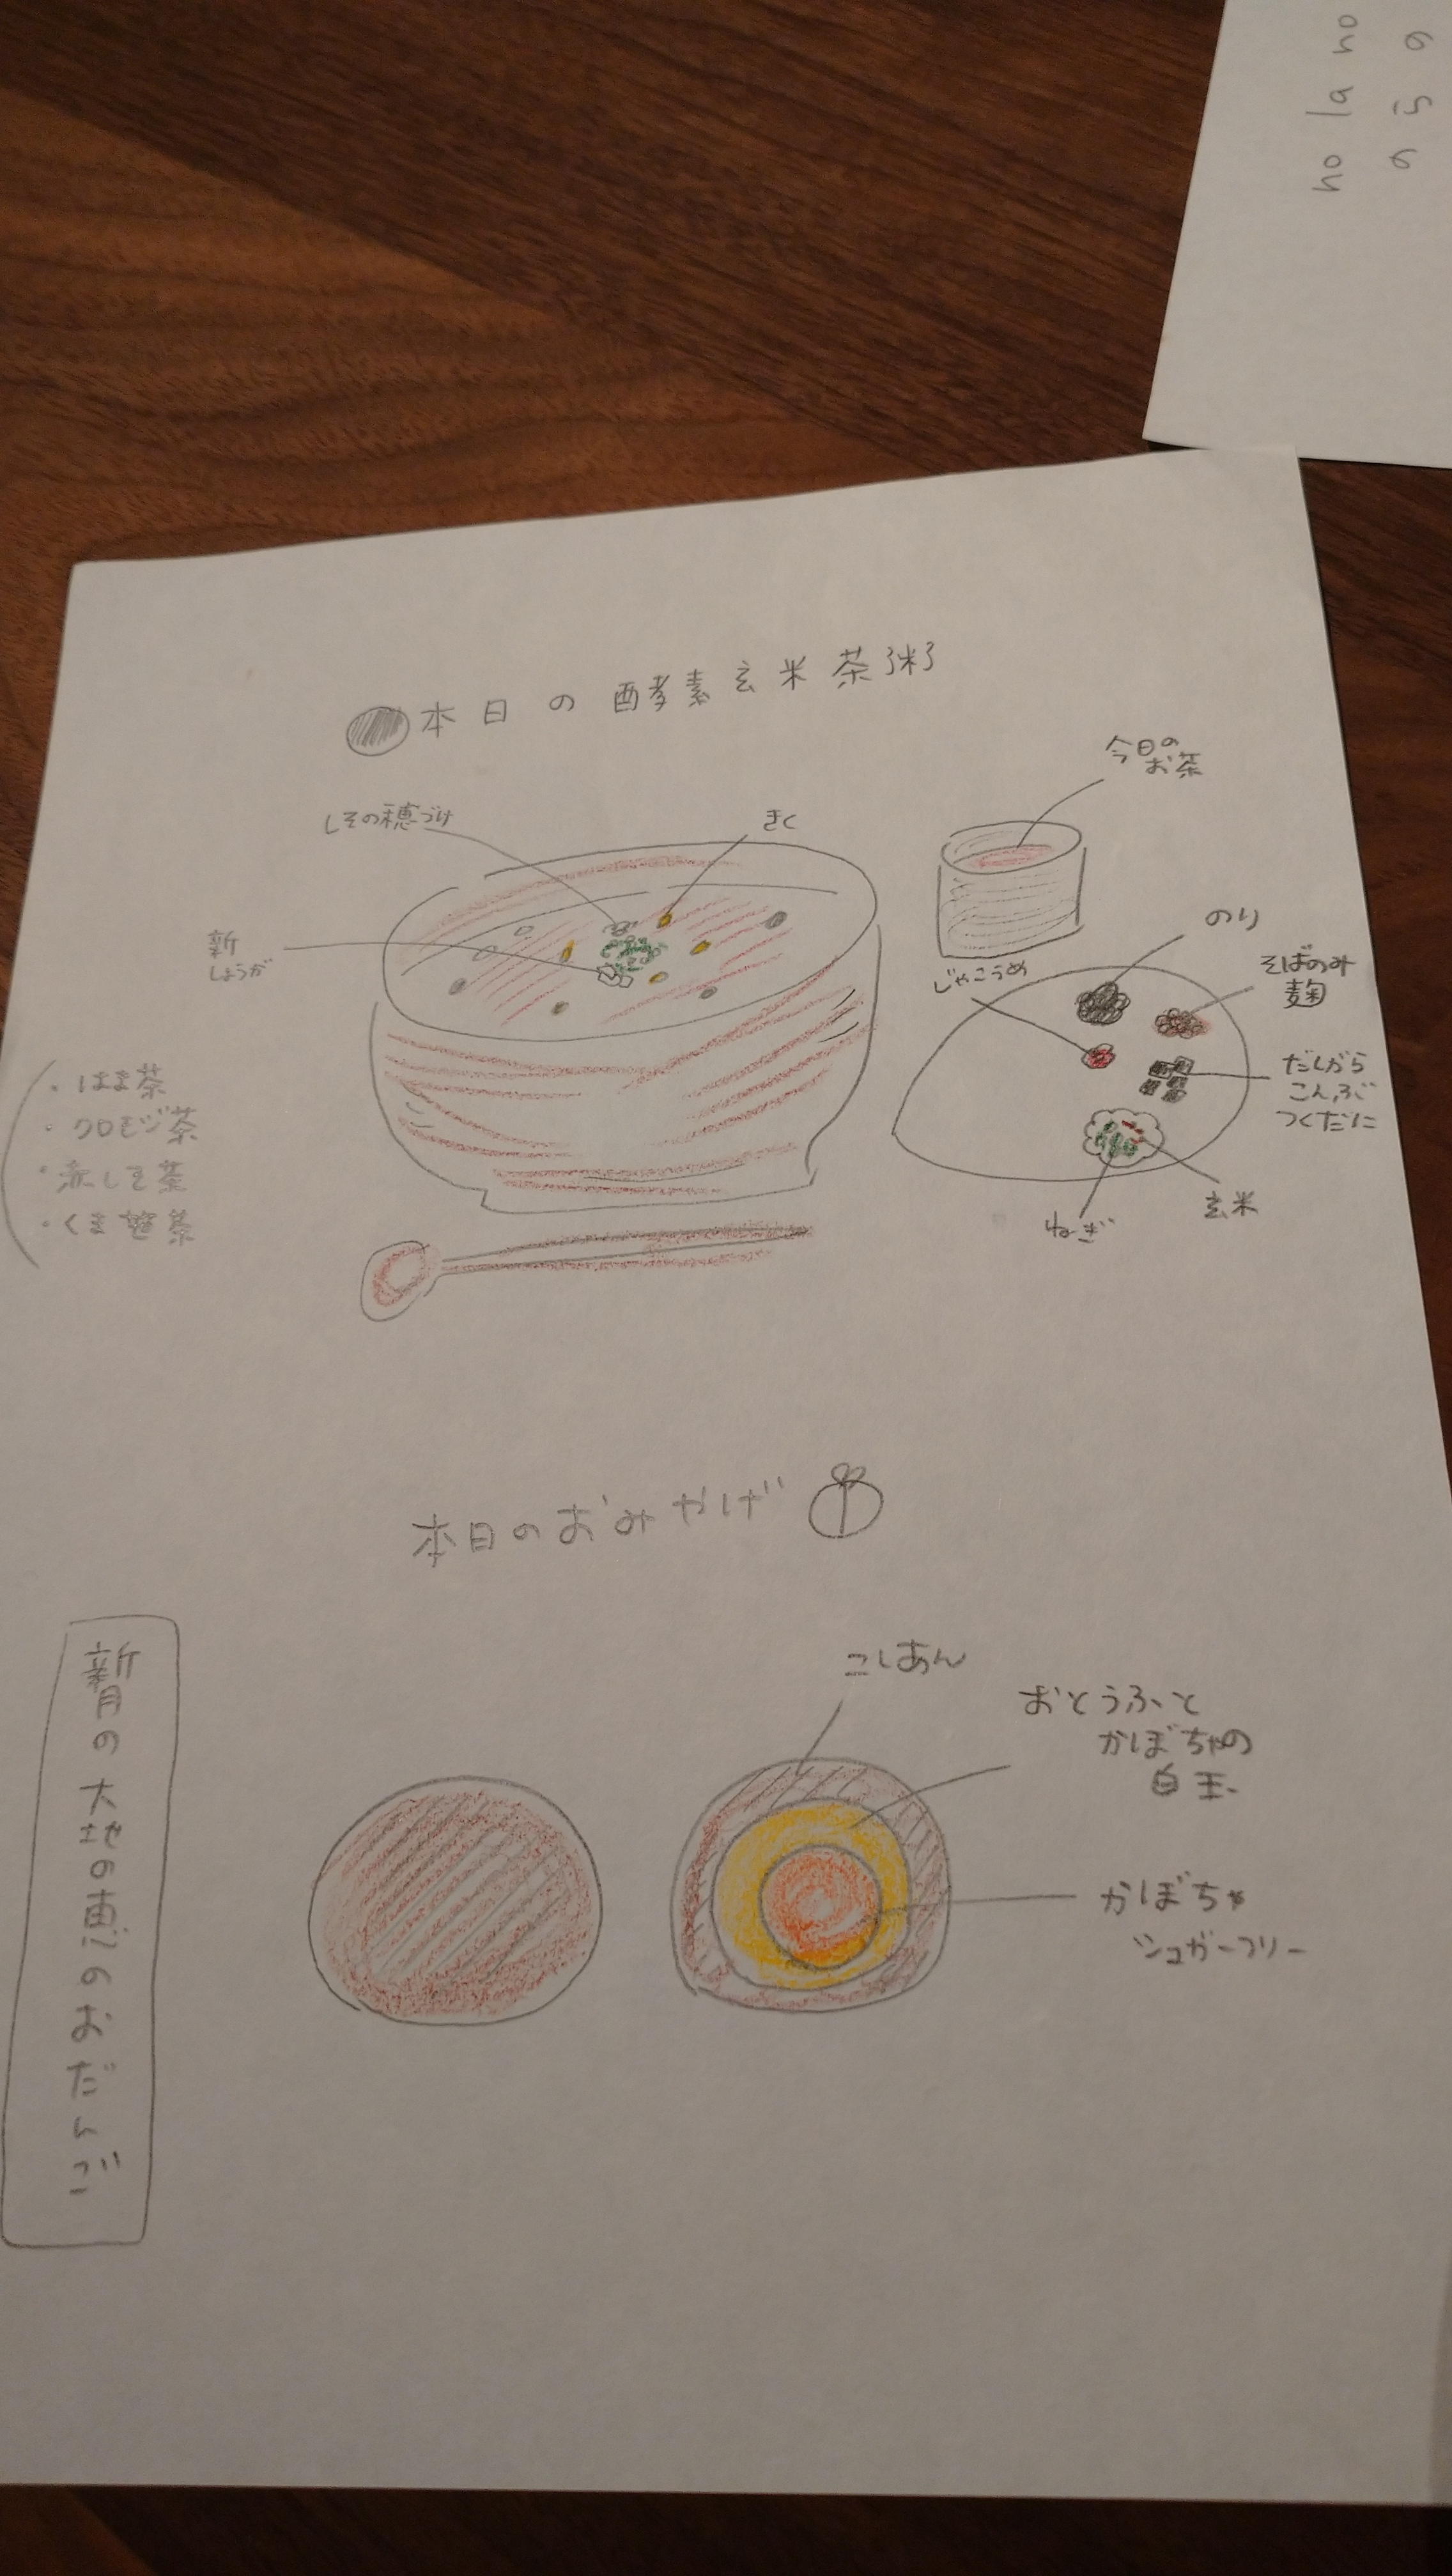 no la no
のらの
本日の酵素玄米茶粥
今日の
お茶
しその穂づけ
きく
新
しょうが
のり
じゃこうめ
そばのみ
麹
だしがら
こんぶ
つくだに
玄米
ねぎ
・はま茶
・クロモジ茶
・赤しそ茶
・くま笹茶
本日のおみやげ
こしあん
おとうふと
かぼちゃの
白玉
かぼちゃ
シュガーフリー
新月の大地の恵のおだんご